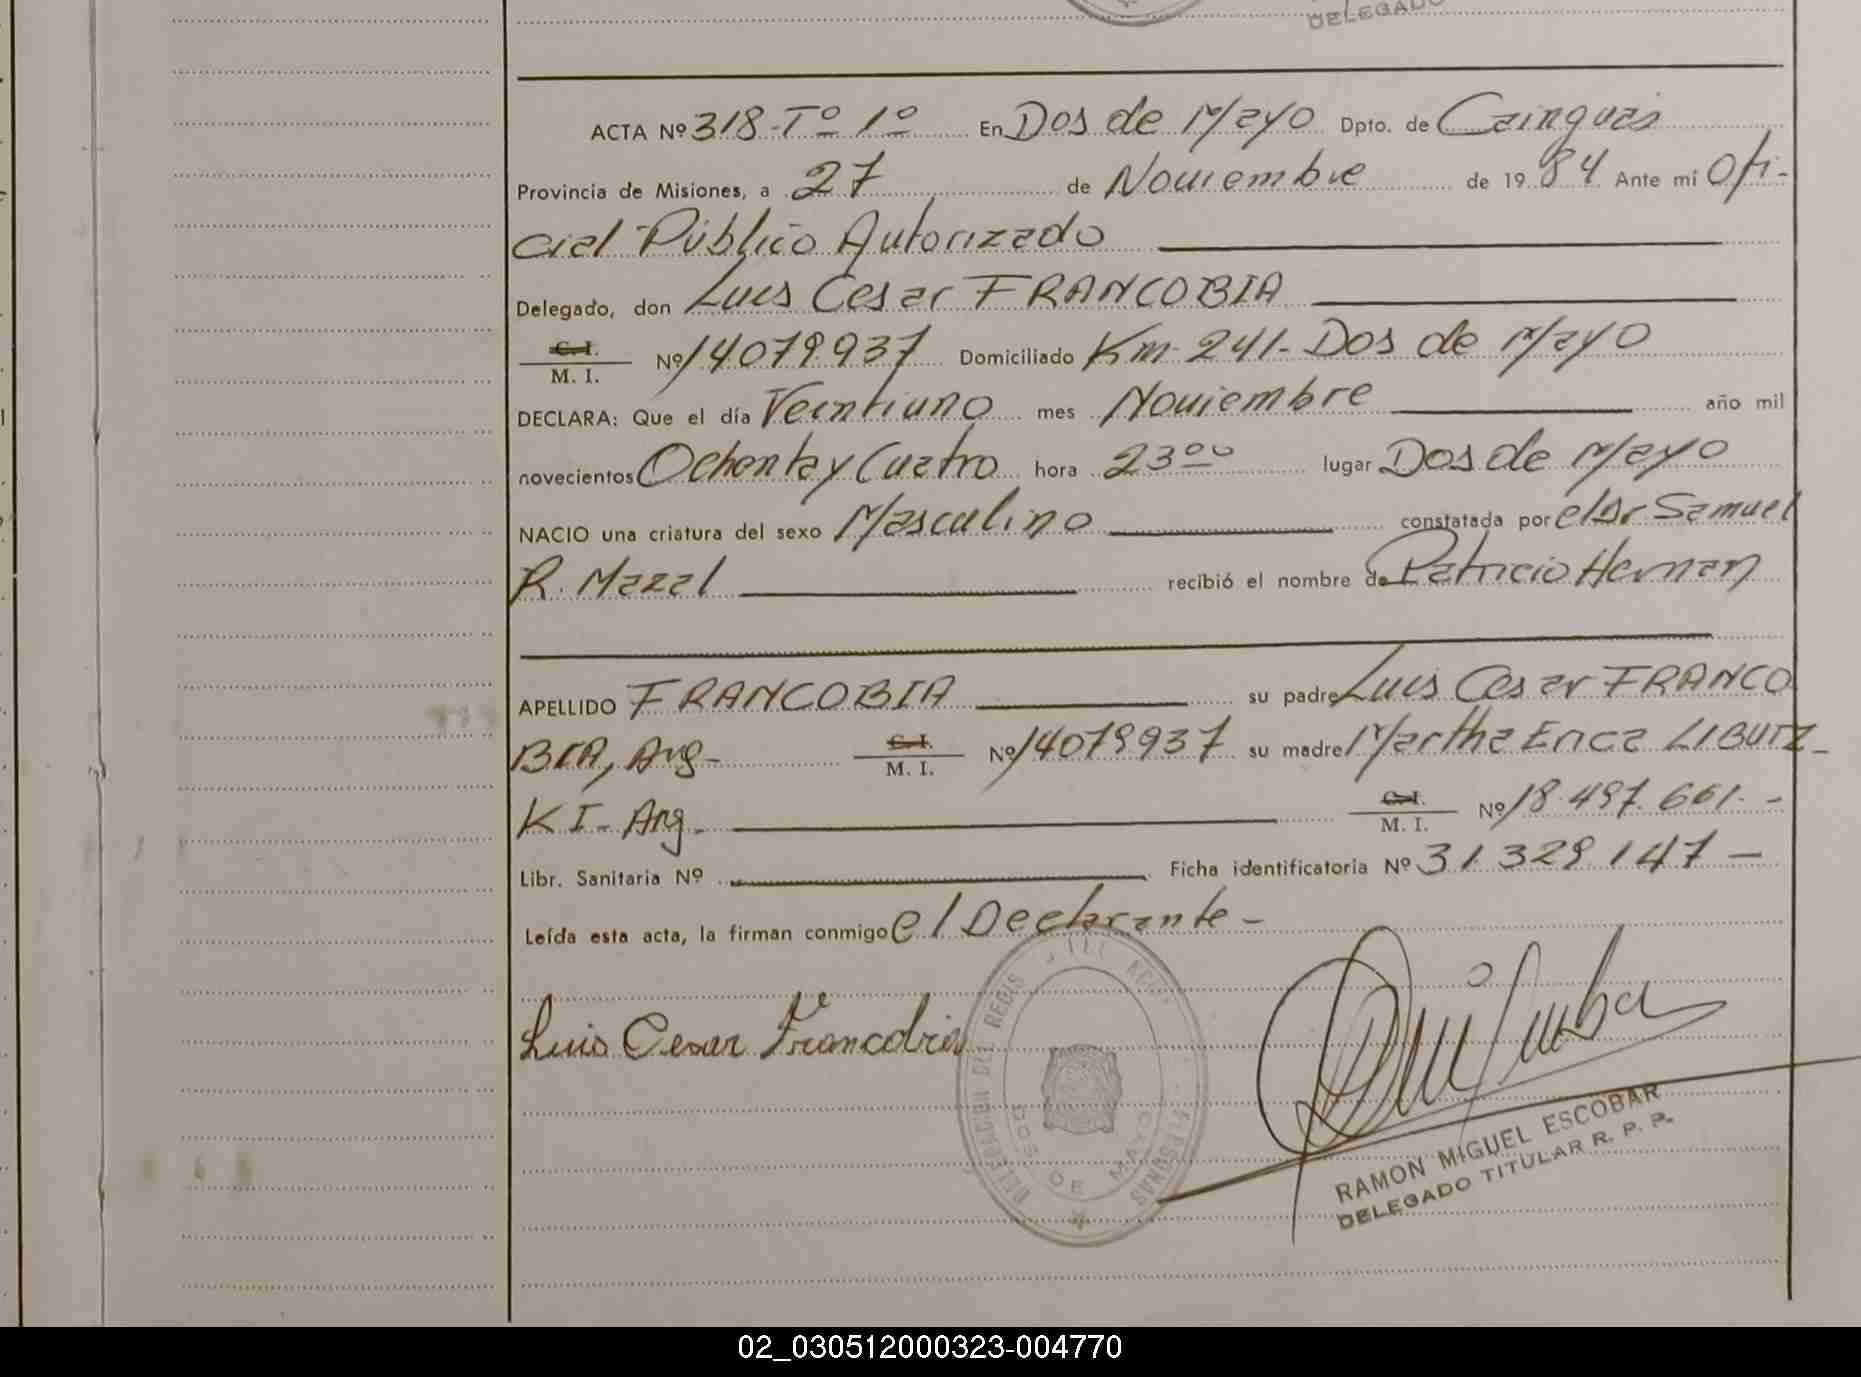 DELEGADO
ACTA Nº 318-Tº 1º En Dos de Mayo Dpto. de Cainguás
Provincia de Misiones, a 27 de Noviembre de 1984 Ante mí Ofi-
cial Público Autorizado
Delegado, don Luis Cesar FRANCOBIA
C. I. / M. I. Nº 14079937 Domiciliado Km 241- Dos de Mayo
DECLARA: Que el día Veintiuno mes Noviembre año mil
novecientos Ochenta y Cuatro hora 23ºº lugar Dos de Mayo
NACIO una criatura del sexo Masculino constatada por el Dr Samuel
R. Mazal recibió el nombre de Patricio Hernan
APELLIDO FRANCOBIA su padre Luis Cesar FRANCO
BIA, Arg- C. I. / M. I. Nº 14079937 su madre Martha Enca LIBUTZ-
KI- Arg. C. I. / M. I. Nº 18.497.661.-
Libr. Sanitaria Nº Ficha identificatoria Nº 31.329.147-
Leída esta acta, la firman conmigo el Declarante-
Luis Cesar Francobia
DELEGACION DEL REGIS
DOS DE MAYO
RAMON MIGUEL ESCOBAR
DELEGADO TITULAR R. P. P.
02_030512000323-004770